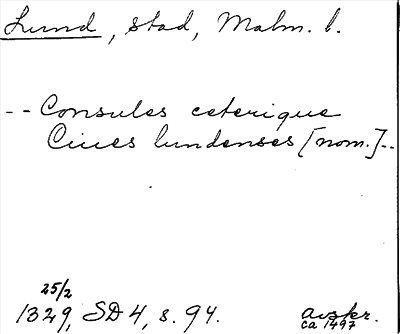 Lund, stad, Malm. l.
-- Consules ceterique
Ciues lundenses [nom.]--
25/2
1329, SD 4, s. 94.
avskr.
ca 1497